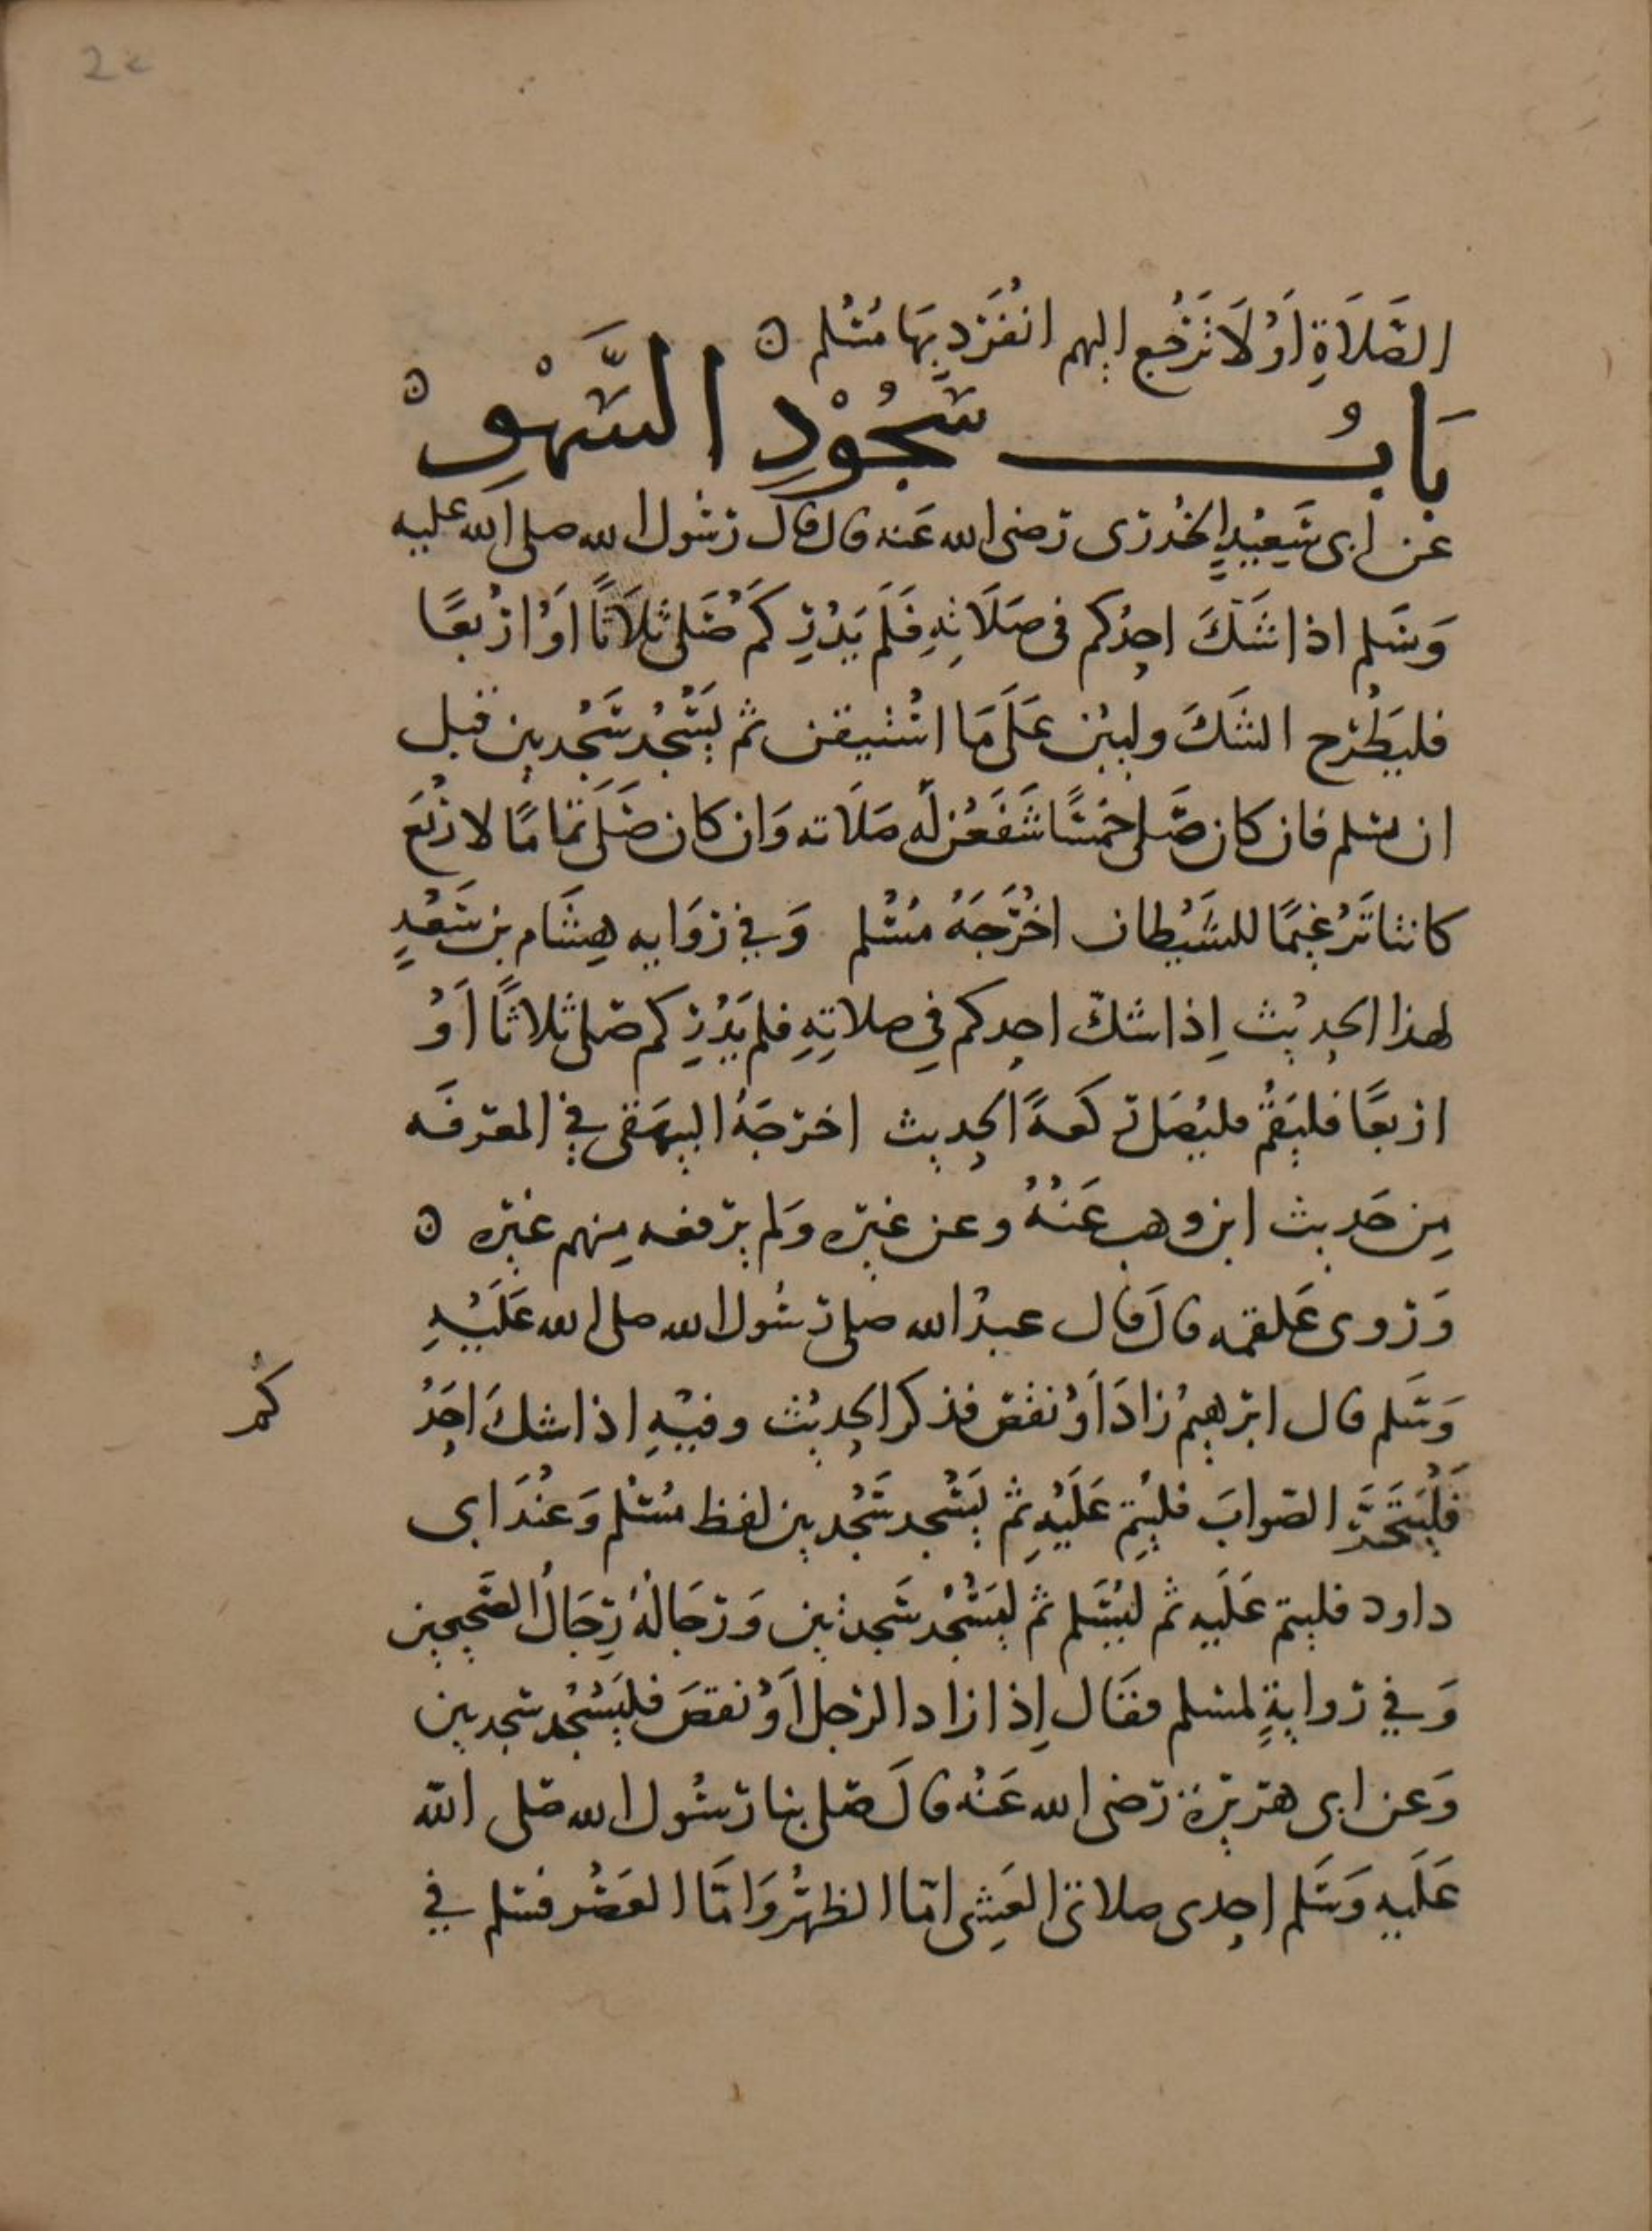 22
الصَّلَاةِ اَوْ لَا تَرْجِع اليهم انْفَرَد بِهَا مُسْلم ه
بَابُ سُجُوْدِ السَّهْوِ ه
عَن ابى سَعِيْدٍ الخُدْرى رضى الله عَنه قال قال رسُول الله صلى الله عليه
وَسَلم اذا شَكَّ احدُكم فى صَلَاتِهِ فَلَم يَدْرِ كَمْ صَلى ثلاَثًا اَوْ ارْبعًا
فليَطْرح الشَكَ وليبْن عَلَى مَا اسْتيقن ثم يَسْجُد سَجْدَتين قبل
ان يسلم فان كان صَّلى خمْسًا شَفَعْن لَه صَلَاته وَان كان صَلَى تَمَامًا لارْبَع
كانتا تَرْغِيمًا للشَّيْطان اخْرَجَهُ مُسْلم وَفِي رِوَايه هِشَام بن سَعْدٍ
لهذا الحديْث اِذا شكّ احدكم فِي صلاتِهِ فلم يَدْرِ كم صَلى ثلاثًا اَوْ
اربعًا فليَقُمْ فليُصَل ركعةً الحديث اخرجَهُ البيهَقى فِي المعرفَه
مِن حَديث ابن وهب عَنْهُ وعن غيره وَلم يرفعه مِنهم غيره ه
وَروى عَلقمه قال قال عبدُ الله صلى رسُول الله صلى الله عَلَيْهِ
وَسَلم قال ابرهيمُ زادَ اَوْ نقص فذكر الحديْث وفيْهِ اذا شكَ احَدُ
كُم
فَلْيَتَحَرَّ الصّوابَ فليُتِم عَلَيْهِ ثم يَسْجد سَجْدَتين لفظ مُسْلم وَعنْدَ ابى
داود فليتم عَلَيه ثم ليُسَلم ثم ليَسْجُد سَجدتين وَرجَالُهُ رِجَالُ الصَّحيحين
وَفِي روايةٍ لمسلم فقال اِذا زاد الرجل اَوْ نقصَ فليَسْجُد سجدتين
وَعن ابى هريرة رَضى الله عَنْه قالَ صَلى بنا رسُول الله صَلى الله
عَلَيه وَسَلم احدى صلاتى العَشِى امّا الظهْرُ وَامَّا العَصْر فسلم فِي